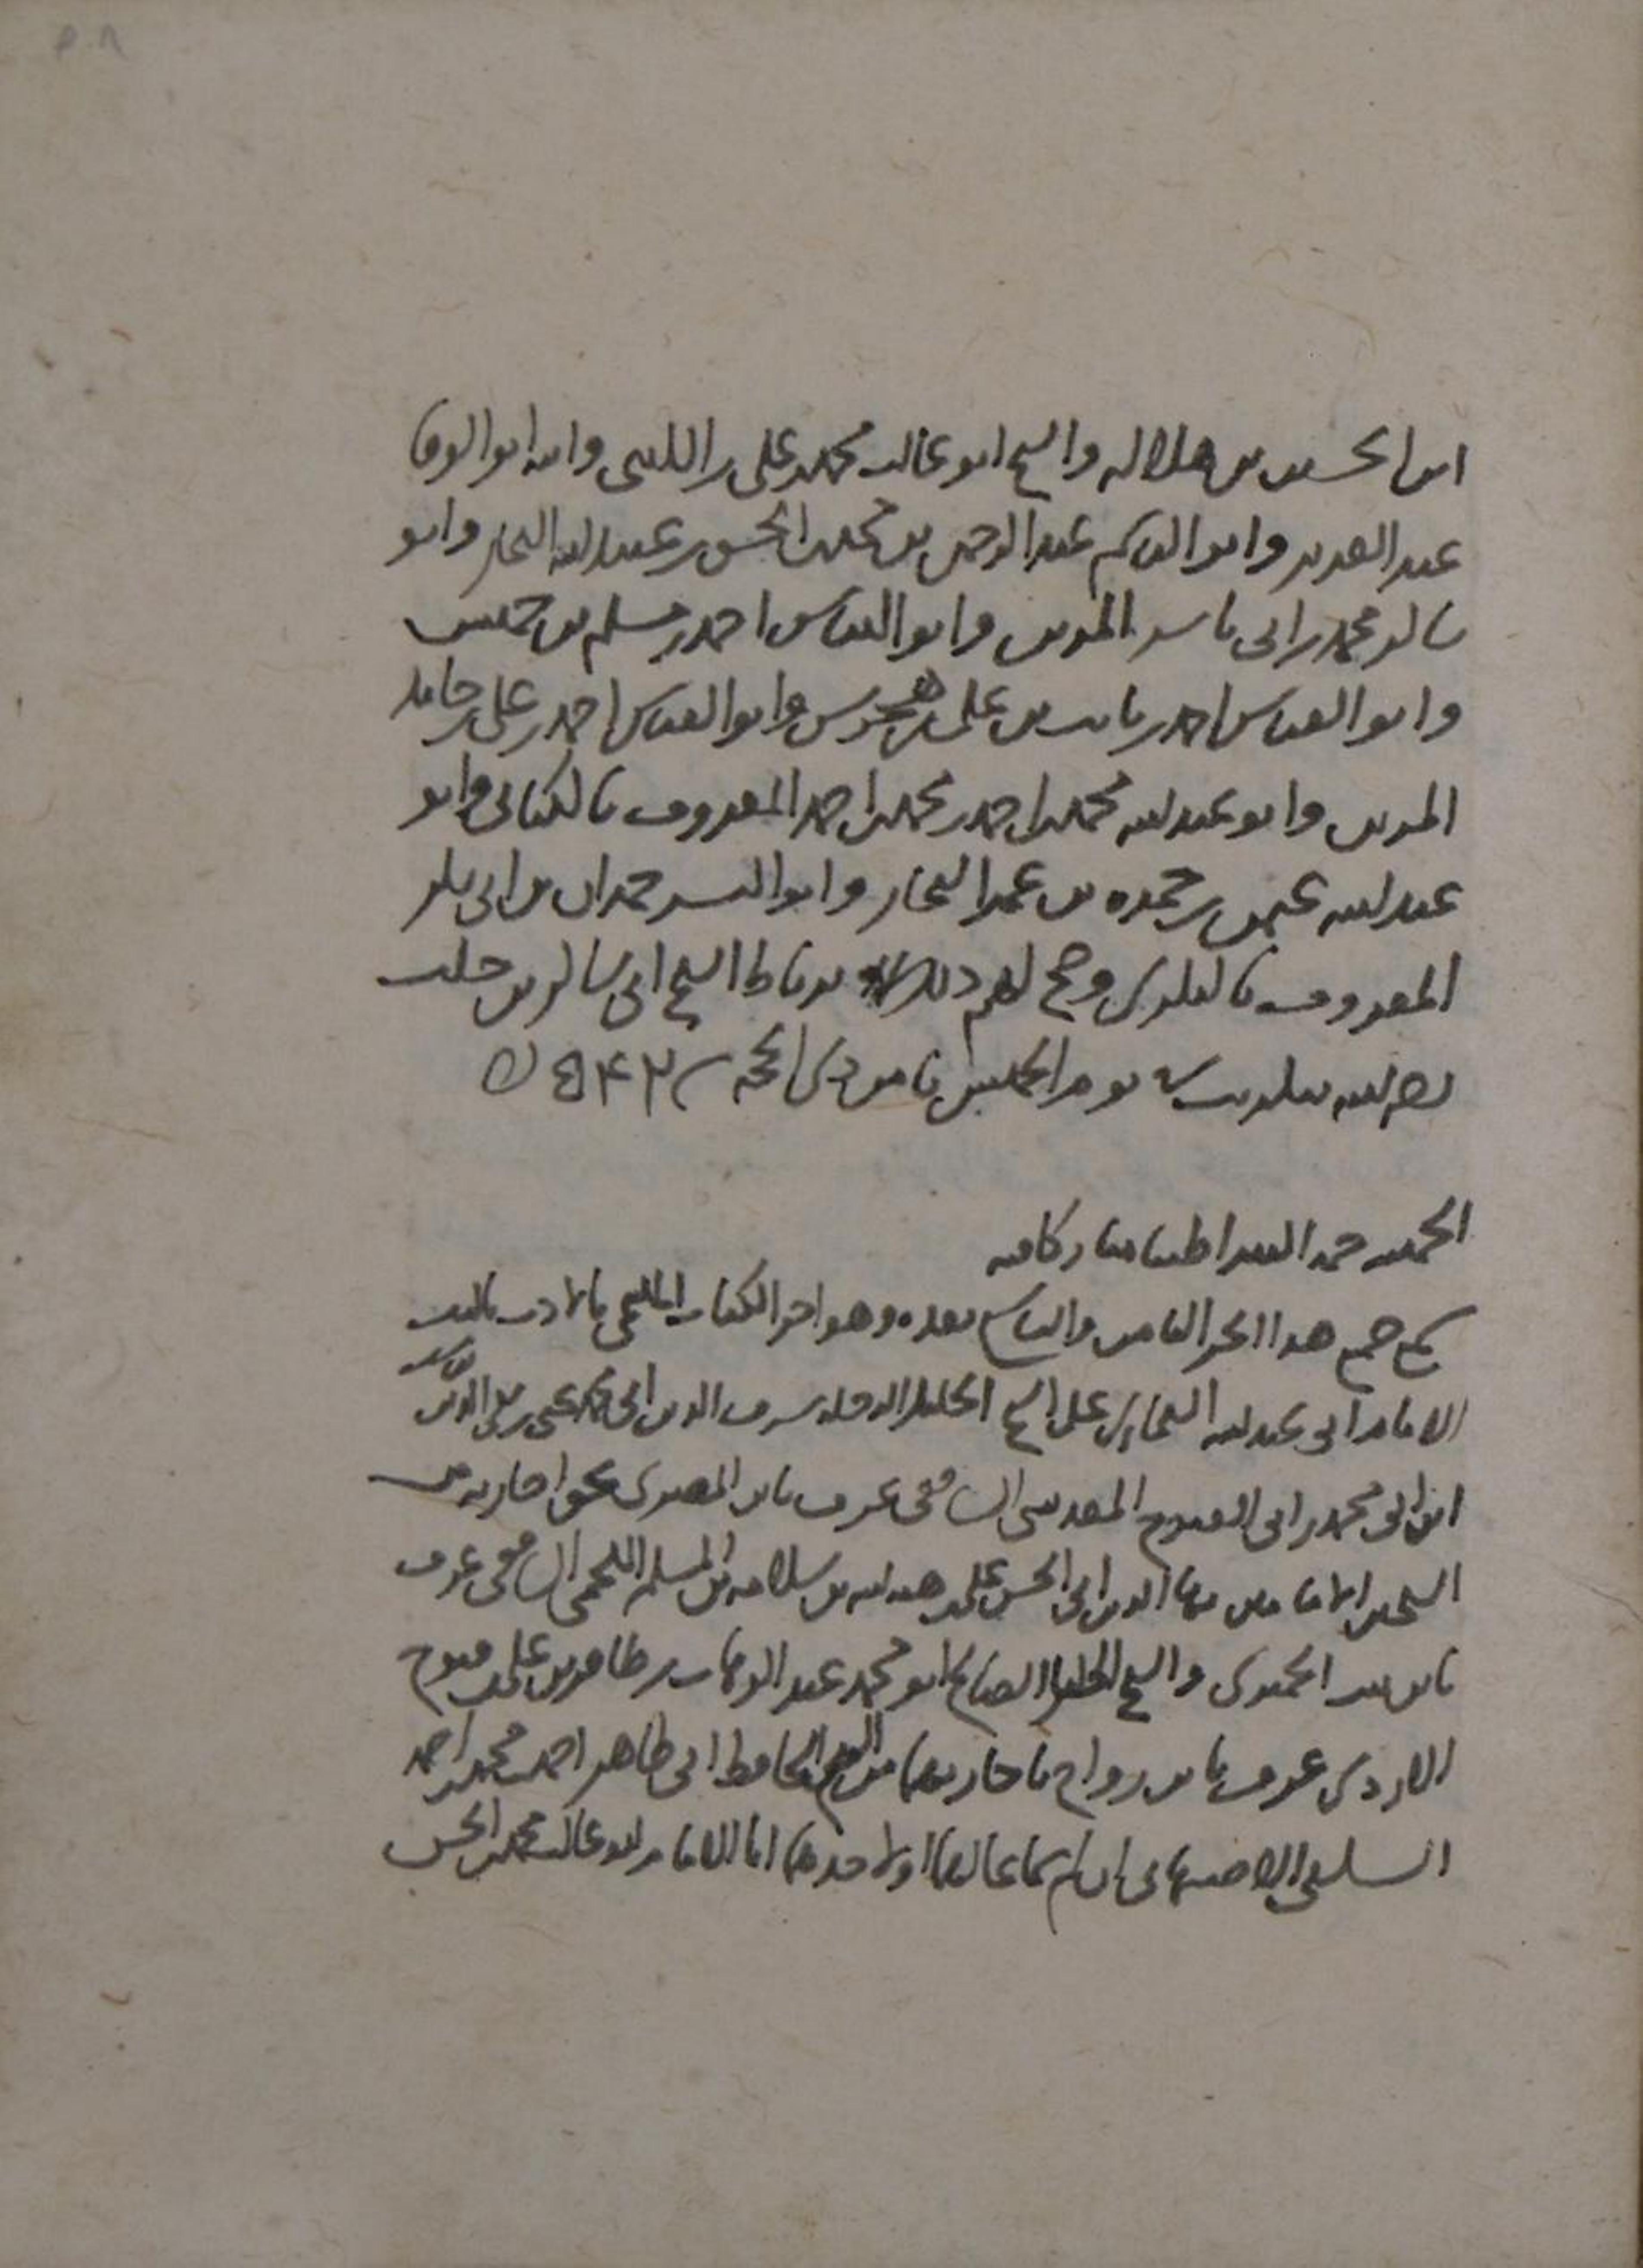 ابن الحسين بن هلاله والشيخ ابو غالب محمد بن علي بن وابنه ابو الوفا
عبد العزيز وابو القاسم عبد الرحمن بن محمد بن الحسن بن عبد الله النجار وابو
شاكر محمد بن ابي ياسر المقرئ وابو العباس احمد بن مسلم بن خميس
وابو العباس احمد بن ثابت بن علي بن وابو العباس احمد بن علي بن حامد
المقرئ وابو عبد الله محمد بن احمد بن محمد بن احمد المعروف بالكتاني وابو
عبد الله بن حمزه بن عمر النجار وابو اليسر حمدان بن ابي بكر
المعروف وصح لهم ذلك الشيخ ابي شاكر بن خلف
يوم الخميس ثامن ذي الحجة ٥٤٢
الحمد لله حمدا كثيرا طيبا مباركا فيه
سمع جميع هذا الجزء الثامن والتاسع بعده وهو اخر الكتاب بالادب تاليف
الامام ابي عبد الله البخاري على الشيخ الجليل شرف الدين ابي محمد يحيى بن
ابن ابي محمد بن ابي الفتوح المقدسي الشافعي عرف بابن المصري بحق اجازته من
الشيخين الامامين بهاء الدين ابي الحسن علي بن هبه الله بن سلامه بن المسلم اللخمي الشافعي عرف
بابن بنت الجميزي والشيخ الجليل الصالح ابو محمد عبد الوهاب بن ظافر بن علي بن فتوح
الازدي عرف بابن رواج باجازتهما من الشيخ الحافظ ابي طاهر احمد بن محمد بن احمد
السلفي الاصبهاني ان لم يكن سماعا لهما او لاحدهما انا الامام ابو غالب محمد بن الحسن